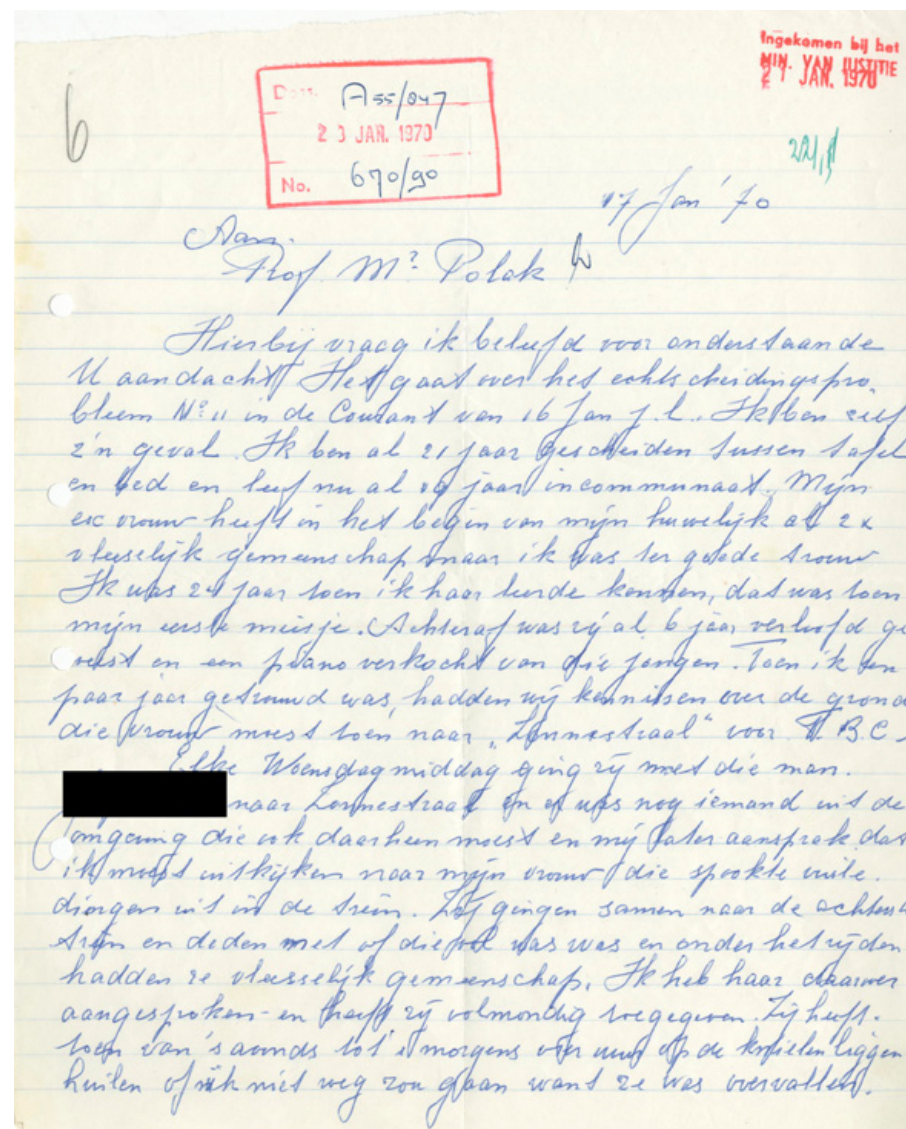 Ingekomen bij het
MIN. VAN JUSTITIE
21 JAN. 1970
6
Doss. A55/047
23 JAN. 1970
No. 670/90
17 Jan '70
Aan.
Prof. Mr. Polak
Hierbij vraag ik beleefd voor onderstaande
U aandacht. Het gaat over het echtscheidingspro.
bleem No. 11 in de Courant van 16 Jan j.l.. Ik ben zelf
z'n geval. Ik ben al 21 jaar gescheiden tussen tafel
en bed en leef nu al 19 jaar in communaat. Mijn
ex vrouw heeft in het begin van mijn huwelijk al 2 x
vleeselijk gemeenschap maar ik was ter goede trouw
Ik was 24 jaar toen ik haar leerde kennen, dat was toen
mijn eerste meisje. Achteraf was zij al 6 jaar verloofd ge
weest en een piano verkocht van die jongen. Toen ik een
paar jaar getrouwd was, hadden wij kennissen over de grond
die vrouw moest toen naar „Zonnestraal" voor T.B.C.
Elke Woensdagmiddag ging zij met die man.
naar Zonnestraal en er was nog iemand uit de
omgeving die ook daarheen moest en mij later aansprak dat
ik moest uitkijken naar mijn vrouw die spookte vuile.
dingen uit in de trein. Zij gingen samen naar de achterste
trein en deden met of die was en onder het rijden
hadden ze vleesselijk gemeenschap. Ik heb haar daarover
aangesproken - en heeft zij volmondig toegegeven. Zij heeft.
toen van 's avonds tot 's morgens vier uur op de knieën liggen
huilen of ik niet weg zou gaan want ze was overvallen.